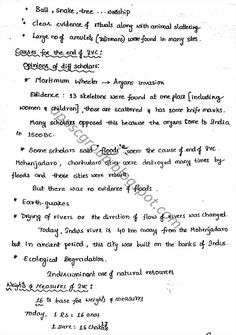 • Bull, snake, tree ... worship
• clear evidence of rituals along with animal slattering.
• Large no of amulets (Talismans) were found in many sites.
Causes for the end of IVC:
Opinions of diff scholars:
• Mortimum Wheeler → Aryans invasion
Evidence: 13 skeletons were found at one place [including
women & children], those are scattered & has some knife marks.
Many scholars opposed this because the aryans come to India
in 1500 BC.
• Some scholars said floods were the cause of end of IVC.
Mohenjadaro, chanhudaro cities were destroyed many times by
floods and those cities were rebuilt.
But there was no evidence of floods.
• Earth-quakes
• Drying of rivers or the direction of flow of rivers was changed.
Today, Indus river is 40 km away from the Mohenjadaro
but in ancient period, this city was built on the banks of Indus.
• Ecological Degradation.
Indiscriminant use of natural resources
Weights & measures of IVC:
16 is base for weights & measures
Today, 1 Rs = 16 anas
1 sare = 16 chataks